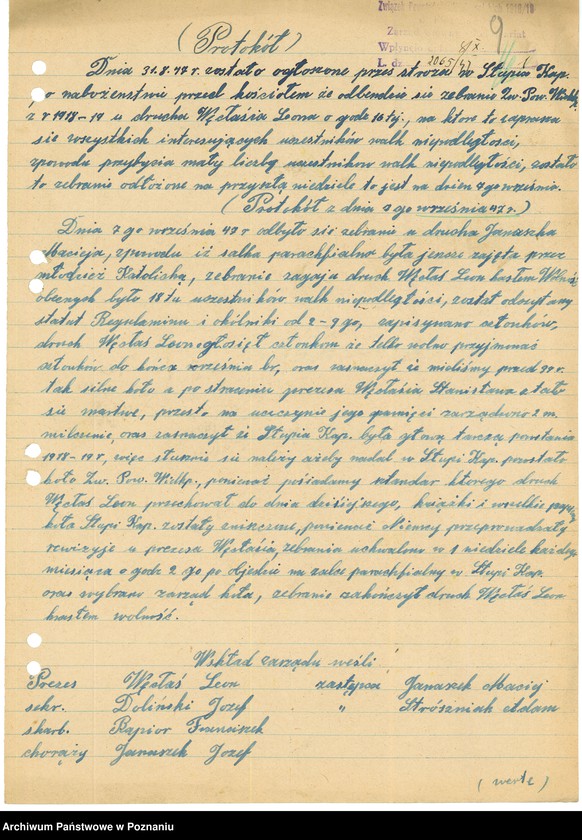 9
Wpłynęło 8/X
L. dz. 2065/47
(Protokół)
Dnia 31.8.47 r. zostało ogłoszone przez stróża w Słupia Kap.
po nabożeństwie przed kościołem że odbendzie się zebranie Zw. Pow. Wielkp.
z r 1918-19 u drucha Węłasia Leona o godz 16 tej, na które to zaprasza
się wszystkich interesujących uczestników walk niepodległości,
zpowodu przybycia małej liczby uczestników walk niepodległości, zostało
to zebranie odłożone na przyszłą niedziele to jest na dzień 7 go września.
(Protokół z dnia 7 go września 47 r.)
Dnia 7 go września 47 r odbyło się zebranie u drucha Januszka
Macieja, zpowodu iż salka parachfialna była jeszcze zajęta przez
młodzież Katolicką, zebranie zagaja druch Węłaś Leon hasłem Wolność
obecnych było 18 tu uczestników walk niepodległości, został odczytany
statut Regulaminu i okólniki od 2-9 go, zapisywano członków,
druch Węłaś Leon ogłosił członkom że tello wolno przyjmować
członków do końca września br, oraz zaznaczył że mieliśmy przed 39 r.
tak silne koło a po straceniu prezesa Węłasia Stanisława stało
się martwe, przest. na uczczynie jego pamięci zarządzono 2 m.
milczenie, oraz zaznaczył że Słupia Kap. była głową tarczą powstania
1918-19 r, więc słusznie się należy ażeby nadal w Słupi Kap. powstało
koło Zw. Pow. Wielkp., ponieważ posiadamy sztandar którego druch
Węłaś Leon przechował do dnia dzisiejszego, książki i wszelkie
koła Słupi Kap. zostały zniszczone, ponieważ Niemcy przeprowadzały
rewizyje u prezesa Węłasia, zebrania uchwalono w 1 niedziele każdego
miesiąca o godz 2 go po Objedzie na salce parachfialny w Słupi Kap.
oraz wybrano zarząd koła, zebranie zakończył druch Węłaś Leon
hasłem wolność.
Wskład zarządu weśli
Prezes Węłaś Leon zastępca Januszek Maciej
sekr. Doliński Jozef " Stróżniak Adam
skarb. Rapior Franciszek
chorąży Januszek Jozef
(verte)
Archiwum Państwowe w Poznaniu